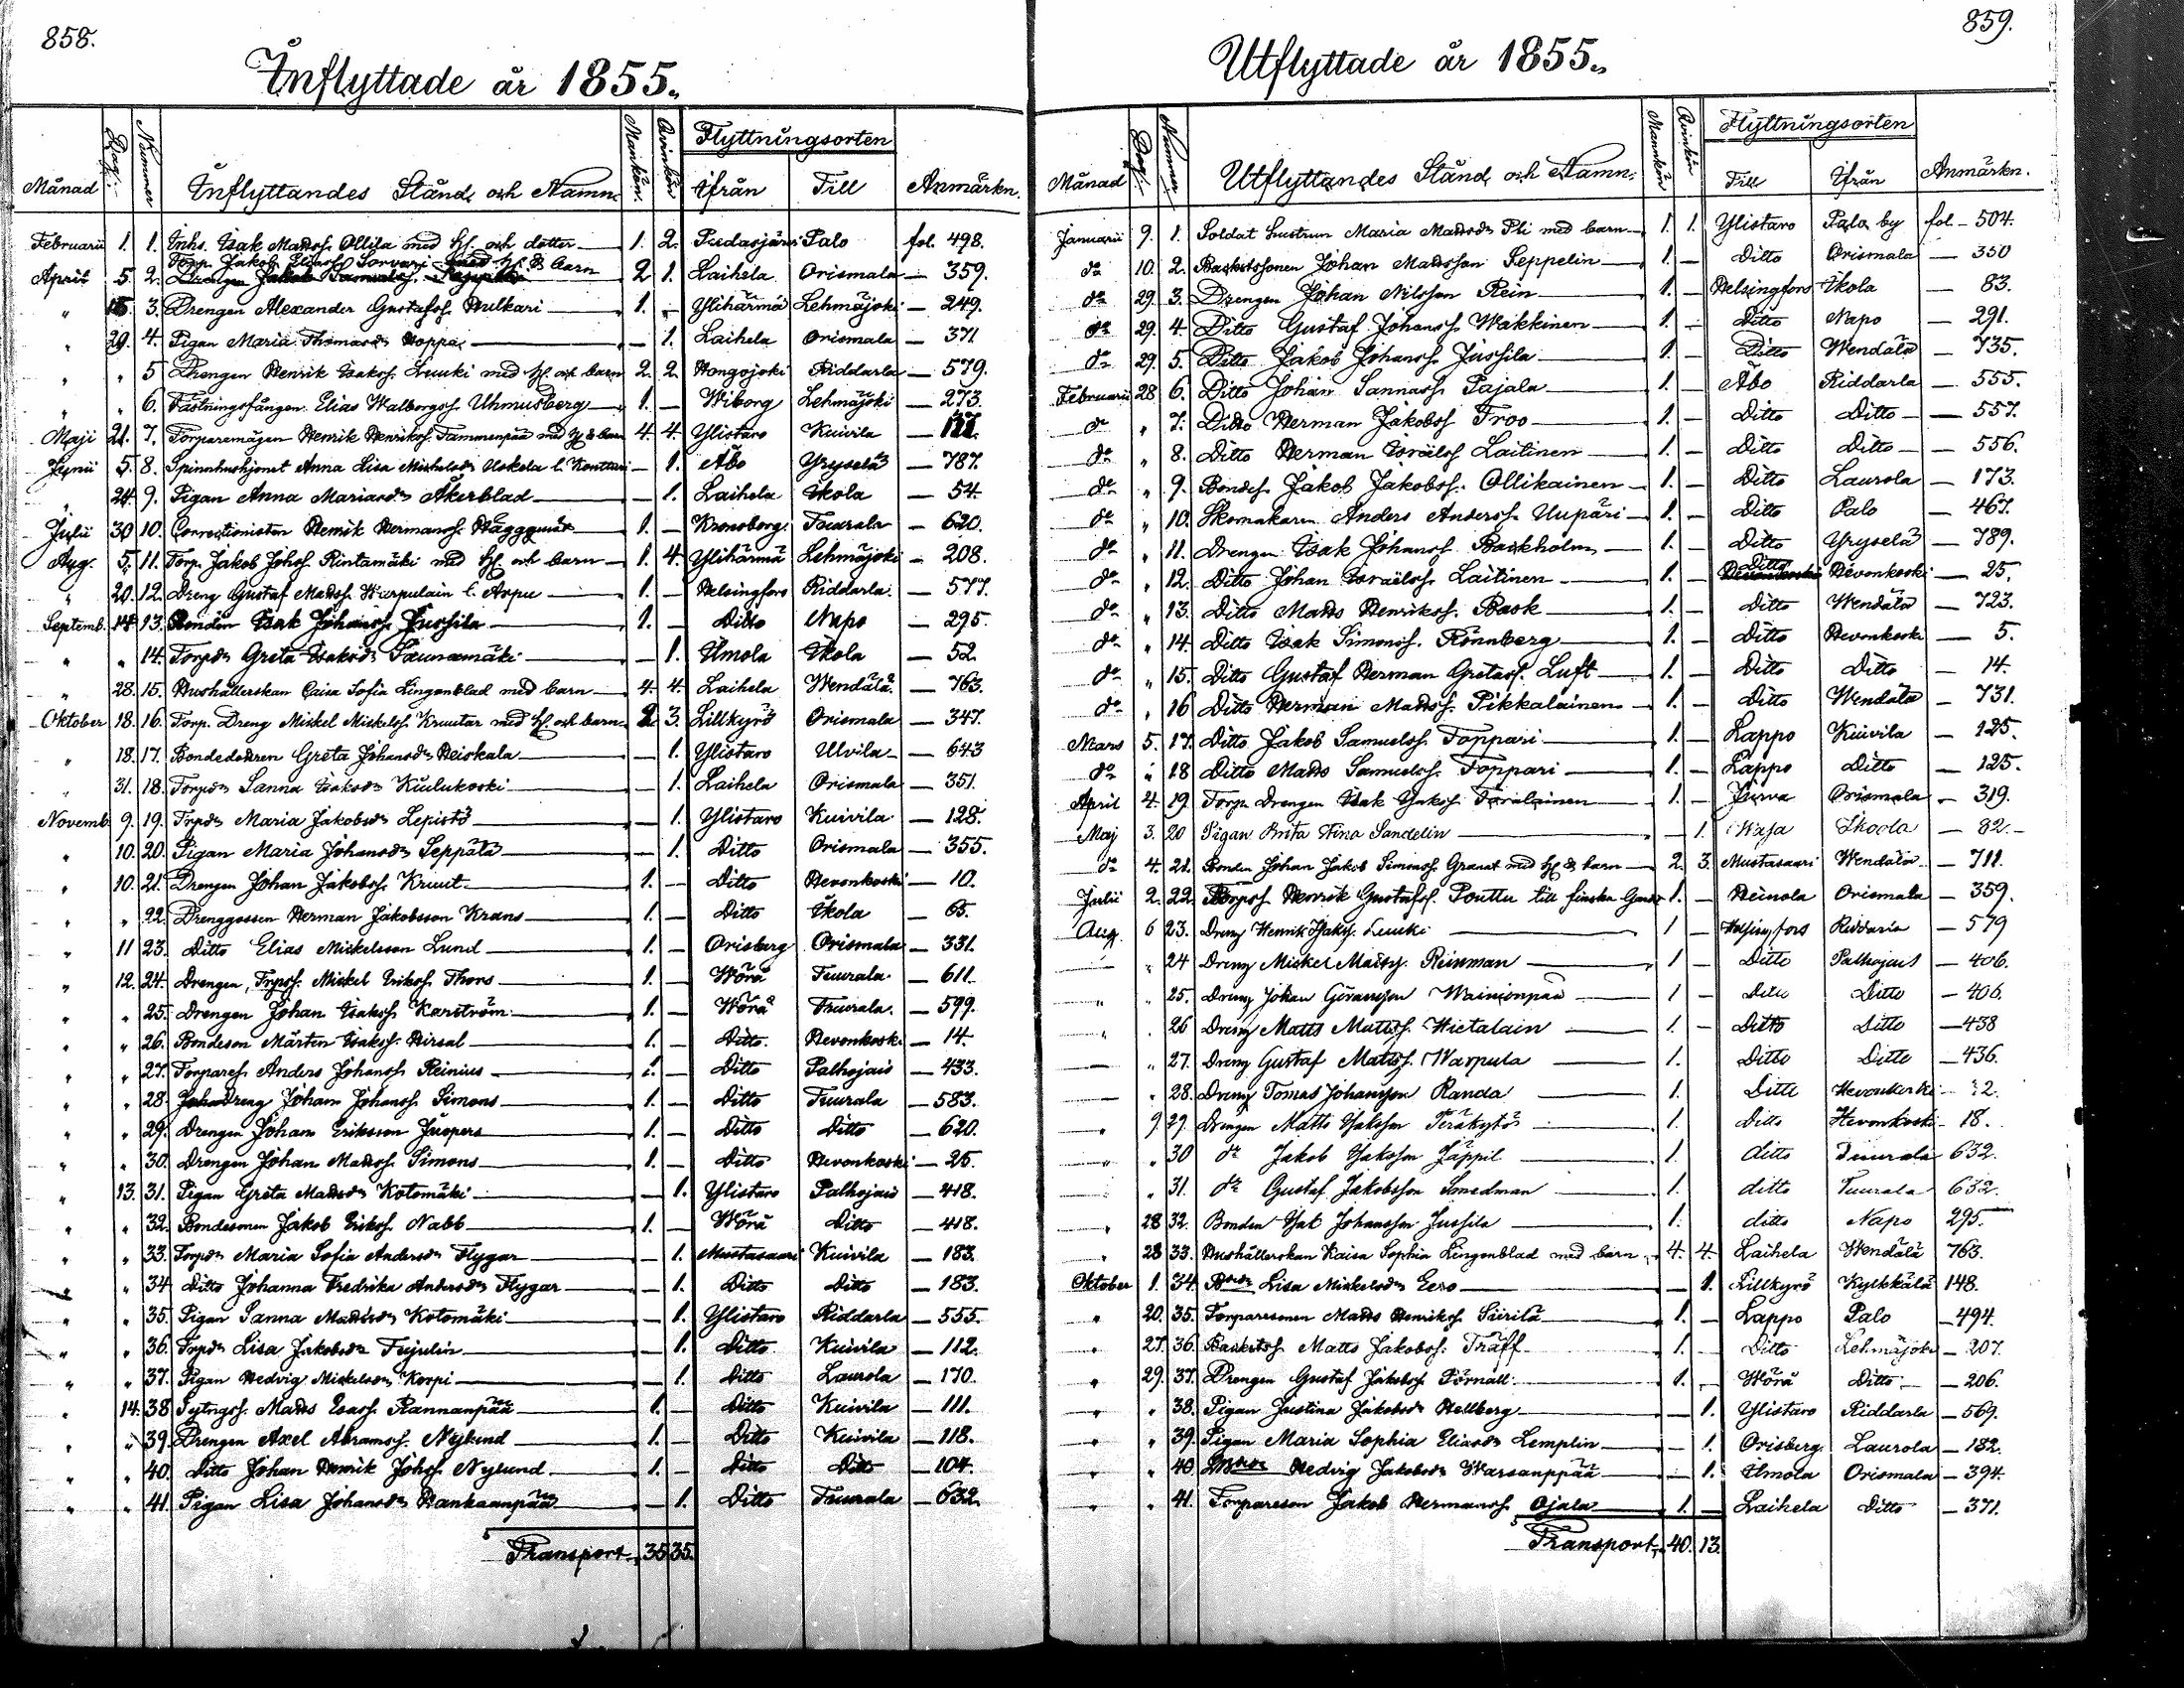 858.
Inflyttade år 1855.
Månad Dag. Nummer Inflyttandes Stånd och Namn. Mankön. Qvinkön Flyttningsorten Ifrån Till Anmärkn.
Februarii 1. 1. Inhs. Isak Matts. Ollila med H. och dotter 1. 2. Palo fol. 498.
Torp. Jakob Eliass. Sorvari med H. & barn
April 5. 2. Drengen Jakob 2 1. Laihela Orismala — 359.
" 15. 3. Drengen Alexander Gustafss. Hulkari 1. - Ylihärmä Lehmäjoki — 249.
" 29. 4. Pigan Maria Thomasdr Hoppa — 1. Laihela Orismala — 371
" " 5 Drengen Henrik Isakss. Luuki med H. och barn 2. 2. Hongojoki Riddarla — 579.
" " 6. Fästningsfången Elias Walborgss. Uhmusberg 1. — Wiborg Lehmäjoki — 273.
Maji 21. 7. Torparemågen Henrik Henrikss. Tammenpää med H & barn 4. 4. Ylistaro Kuivila
Junii 5. 8. Spinnhushjonet Anna Lisa Michelsdr Uokola l. Konttari — 1. Åbo Yryselä — 787.
" 24. 9. Pigan Anna Mariasdr Åkerblad — 1. Laihela Ikola — 54.
Julii 30 10. Correctionisten Henrik Hermanss. Häggqvist 1. — Kronoborg. Tuurala — 620.
Aug. 5. 11. Torp. Jakob Johss. Rintamäki med H. och barn 1. 4. Ylihärmä Lehmäjoki — 208.
" 20. 12. Dreng Gustaf Matss. Warpulain l. Arpu 1. — Helsingfors Riddarla. — 577.
Septemb. 14 13. Bonden Isak Johanss. Jussila 1. — Ditto Napo — 295.
" " 14. Torpdr Greta Isaksdr Saunamäki — 1. Ilmola Ikola — 52
" 28. 15. Hushållerskan Caisa Sofia Lingonblad med barn 4. 4. Laihela Wendälä. — 763.
Oktober 18. 16. Torp. Dreng Mickel Mickelss. Kruutar med H och barn 2. 3. Lillkyrö Orismala — 347.
" 18. 17. Bondedottren Greta Johansdr Heiskala — 1. Ylistaro Ulvila — 643
" 31. 18. Torpdr Sanna Isaksdr Kuulukoski — 1. Laihela Orismala — 351.
Novemb. 9. 19. Trpdr Maria Jakobsdr Lepistö — 1. Ylistaro Kuivila — 128.
" 10. 20. Pigan Maria Johansdr Seppälä — 1. Ditto Orismala — 355.
" 10. 21. Drengen Johan Jakobss. Kruut 1. — Ditto Hevonkoski — 10.
" " 22. Drenggossen Herman Jakobsson Krans 1. — Ditto Ikola — 65.
" 11 23. Ditto Elias Mickelsson Lund 1. — Orisberg Orismala — 331.
" 12. 24. Drengen, Trpss. Mickel Erikss. Thors 1. — Wörå Tuurala — 611.
" " 25. Drengen Johan Isakss. Karström 1. — Wörå Tuurala. — 599.
" " 26. Bondeson Mårten Isakss. Hirsal 1. — Ditto. Hevonkoski — 14.
" " 27. Torparess. Anders Johanss. Reinius 1. — Ditto Palhojais — 433.
" " 28. Dreng Johan Johanss. Simons 1. — Ditto Tuurala — 583.
" " 29. Drengen Johan Eriksson Juspers 1. — Ditto Ditto — 620.
" " 30. Drengen Johan Matss. Simons 1. — Ditto Hevonkoski — 25.
" 13. 31. Pigan Greta Matsdr Kotomäki — 1. Ylistaro Palhojais — 418.
" " 32. Bondesonen Jakob Erikss. Nabb 1. — Wörå Ditto — 418.
" " 33. Torpdr Maria Sofia Andersdr Flygar — 1. Mustasaari Kuivila — 183.
" " 34 Ditto Johanna Fredrika Andersdr Flygar — 1. Ditto Ditto — 183.
" " 35. Pigan Sanna Mattsdr Kotomäki — 1. Ylistaro Riddarla — 555.
" " 36. Trpdr Lisa Jakobsdr — 1. Ditto Kuivila — 112.
" " 37. Pigan Hedvig Mickelsdr Korpi — 1. Ditto Laurola — 170.
" 14. 38 Sytngs. Matts Esass. Rannanpää 1. — Ditto Kuivila — 111.
" " 39. Drengen Axel Abramss. Nylund 1. — Ditto Kuivila — 118.
" " 40. Ditto Johan Henrik Johss. Nylund 1. — Ditto Ditto — 104.
" " 41. Pigan Lisa Johansdr Hankaanpää — 1. Ditto Tuurala — 632.
Transport 35 35.
859.
Utflyttade år 1855.
Månad Dag. Nummer. Utflyttandes Stånd och Namn. Mannkön Qvinkön Flyttningsorten Till Ifrån Anmärkn.
Januarii 9. 1. Soldat hustrun Maria Mattsdr Pli med barn 1. 1. Ylistaro Palo by fol. — 504.
do 10. 2. Backstssonen Johan Matsson Seppelin 1. — Ditto Orismala — 350
do 29. 3. Drengen Johan Nilsson Rein 1. — Helsingfors Ikola — 83.
do 29. 4. Ditto Gustaf Johanss. Wakkinen 1. — Ditto Napo — 291.
do 29. 5. Ditto Jakob Johanss. Jussila 1. — Ditto Wendälä — 735.
Februarii 28 6. Ditto Johan Sannass. Pajala 1. — Åbo Riddarla — 555.
do " 7. Ditto Herman Jakobss Troo 1. — Ditto Ditto — 557.
do " 8. Ditto Herman Israelss Laitinen 1. — Ditto Ditto — 556.
do " 9. Bondes. Jakob Jakobss. Ollikainen 1. — Ditto Laurola — 173.
do " 10. Skomakaren Anders Anderss. Uupäri 1. — Ditto Palo — 467.
do " 11. Drengen Isak Johanss. Backholm 1. — Ditto Yryselä — 789.
do " 12. Ditto Johan Israelss. Laitinen 1. — Ditto Hevonkoski — 25.
do " 13. Ditto Matts Henrikss. Back 1. — Ditto Wendälä — 723.
do " 14. Ditto Isak Simonss. Rönnberg 1. — Ditto Hevonkoski — 5.
do " 15. Ditto Gustaf Herman Gretass. Luft 1. — Ditto Ditto — 14.
do " 16 Ditto Herman Matss. Pikkalainen 1. — Ditto Wendälä — 731.
Mars 5. 17. Ditto Jakob Samuelss. Toppari 1. — Lappo Kuivila — 125.
do " 18 Ditto Matts Samuelss. Toppari 1. — Lappo Ditto — 125.
April 4. 19. Torp. Drengen Isak Isakss. 1. — Jurva Orismala — 319.
Maj 3. 20 Pigan Brita Stina Sandelin — 1. Wasa Ikoola — 82.
do 4. 21. Bonden Johan Jakob Simonss. Granat med H & barn 2. 3. Mustasaari Wendälä — 711.
Julii 2. 22. Torpss. Henrik Gustafss. Pouttu till finska Gard. 1. — Heinola Orismala — 359.
Aug. 6 23. Dreng Henrik Isakss. Luuki 1 — Helsingfors Riddarla — 579
" " 24 Dreng Mickel Matss. Reinman 1 — Ditto Palhojais — 406.
" " 25. Dreng Johan Göransson Wainionpää 1 — Ditto Ditto — 406.
" " 26 Dreng Matts Mattss. Hietalain 1. — Ditto Ditto — 438
" " 27. Dreng Gustaf Matss. Warpula 1. Ditto Ditto — 436.
" " 28. Dreng Tomas Johansson Randa 1. Ditto Hevonkoski
" 9 29. Drengen Matts Isaksson Peräkytö 1. Ditto Hevonkoski — 18.
" " 30 do Jakob Isaksson Jäppil 1. ditto Tuurala 632.
" " 31. do Gustaf Jakobsson Smedman 1. ditto Tuurala 632.
" 28 32. Bonden Isak Johansson Jussila 1. ditto Napo 295.
" 28 33. Hushållerskan Kaisa Sophia Lingonblad med barn 4. 4. Laihela Wendälä 763.
Oktober 1. 34. Lisa Mickelsdr Eero — 1. Lillkyrö Kylkkälä 148.
" 20. 35. Torparesonen Matts Henrikss. Siirilä 1. — Lappo Palo — 494.
" 27. 36. Backstss. Matts Jakobss. Träff 1. — Ditto Lehmäjoki — 207.
" 29. 37. Drengen Gustaf Jakobss Pörnäll 1. — Wörå Ditto — 206.
" " 38. Pigan Justina Jakobsdr Hellberg — 1. Ylistaro Riddarla — 569.
" " 39. Pigan Maria Sophia Eliasdr Lemplin — 1. Orisberg Laurola — 182.
" " 40. Hedvig Jakobsdr Warsanppää — 1. Ilmola Orismala — 394.
" " 41. Torpareson Jakob Hermanss. Ojala 1. — Laihela Ditto — 371.
Transport 40. 13.